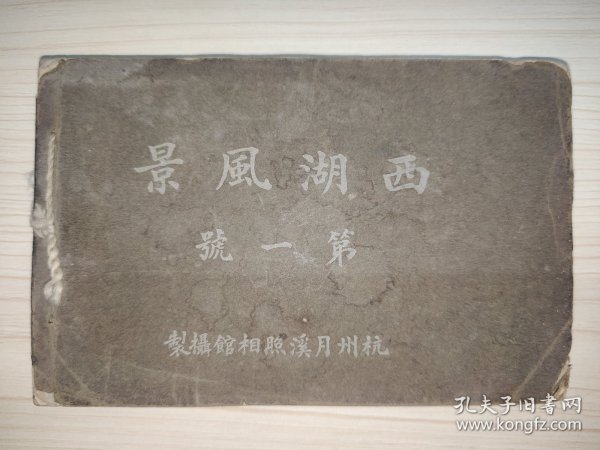 西湖風景
第一號
杭州月溪照相館攝製
孔夫子旧书网
www.kongfz.com